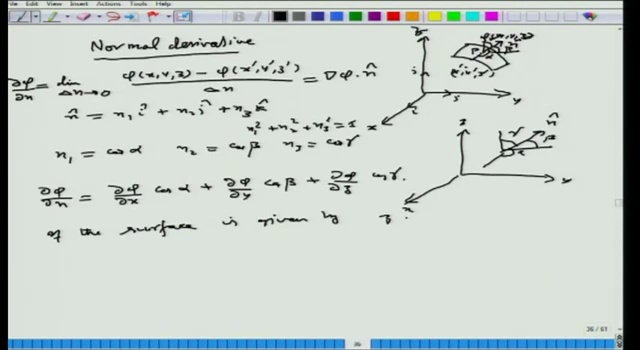 File Edit View Insert Actions Tools Help
Normal derivative
∂φ/∂n = lim Δn→0 φ(x,y,z) − φ(x',y',z') / Δn = ∇φ·n̂
n̂ = n₁ î + n₂ ĵ + n₃ k̂
n₁² + n₂² + n₃² = 1
n₁ = cos α n₂ = cos β n₃ = cos γ
∂φ/∂n = ∂φ/∂x cos α + ∂φ/∂y cos β + ∂φ/∂z cos γ.
If the surface is given by z =
z
φ(x,y,z)
(x',y',z')
y
x
z
n̂
γ
β
α
y
x
36 / 61
36